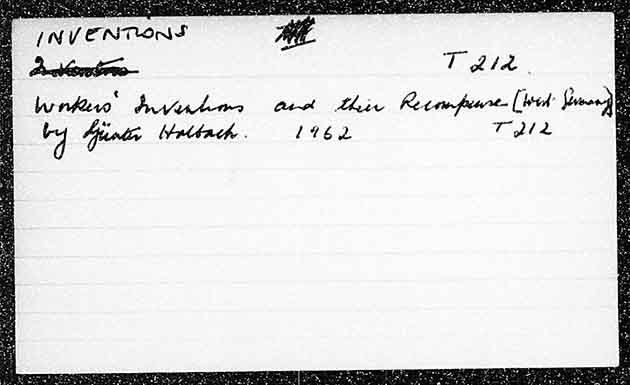 INVENTIONS
Inventions
T 212
Workers' Inventions and their Recompense [West Germany]
by Günter Halbach. 1962 T 212